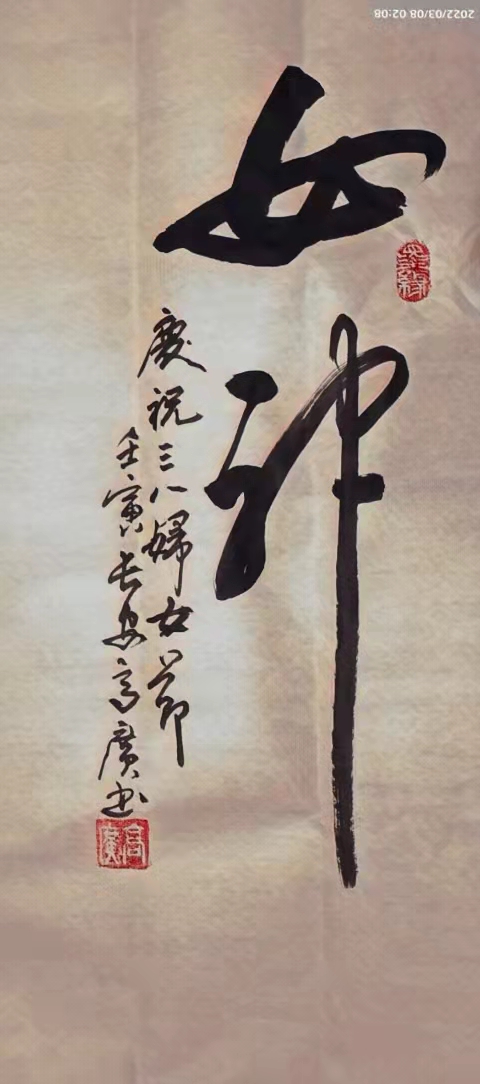 2022/03/08 02:08
女神
慶祝三八婦女節
壬寅長安高廣书
高廣